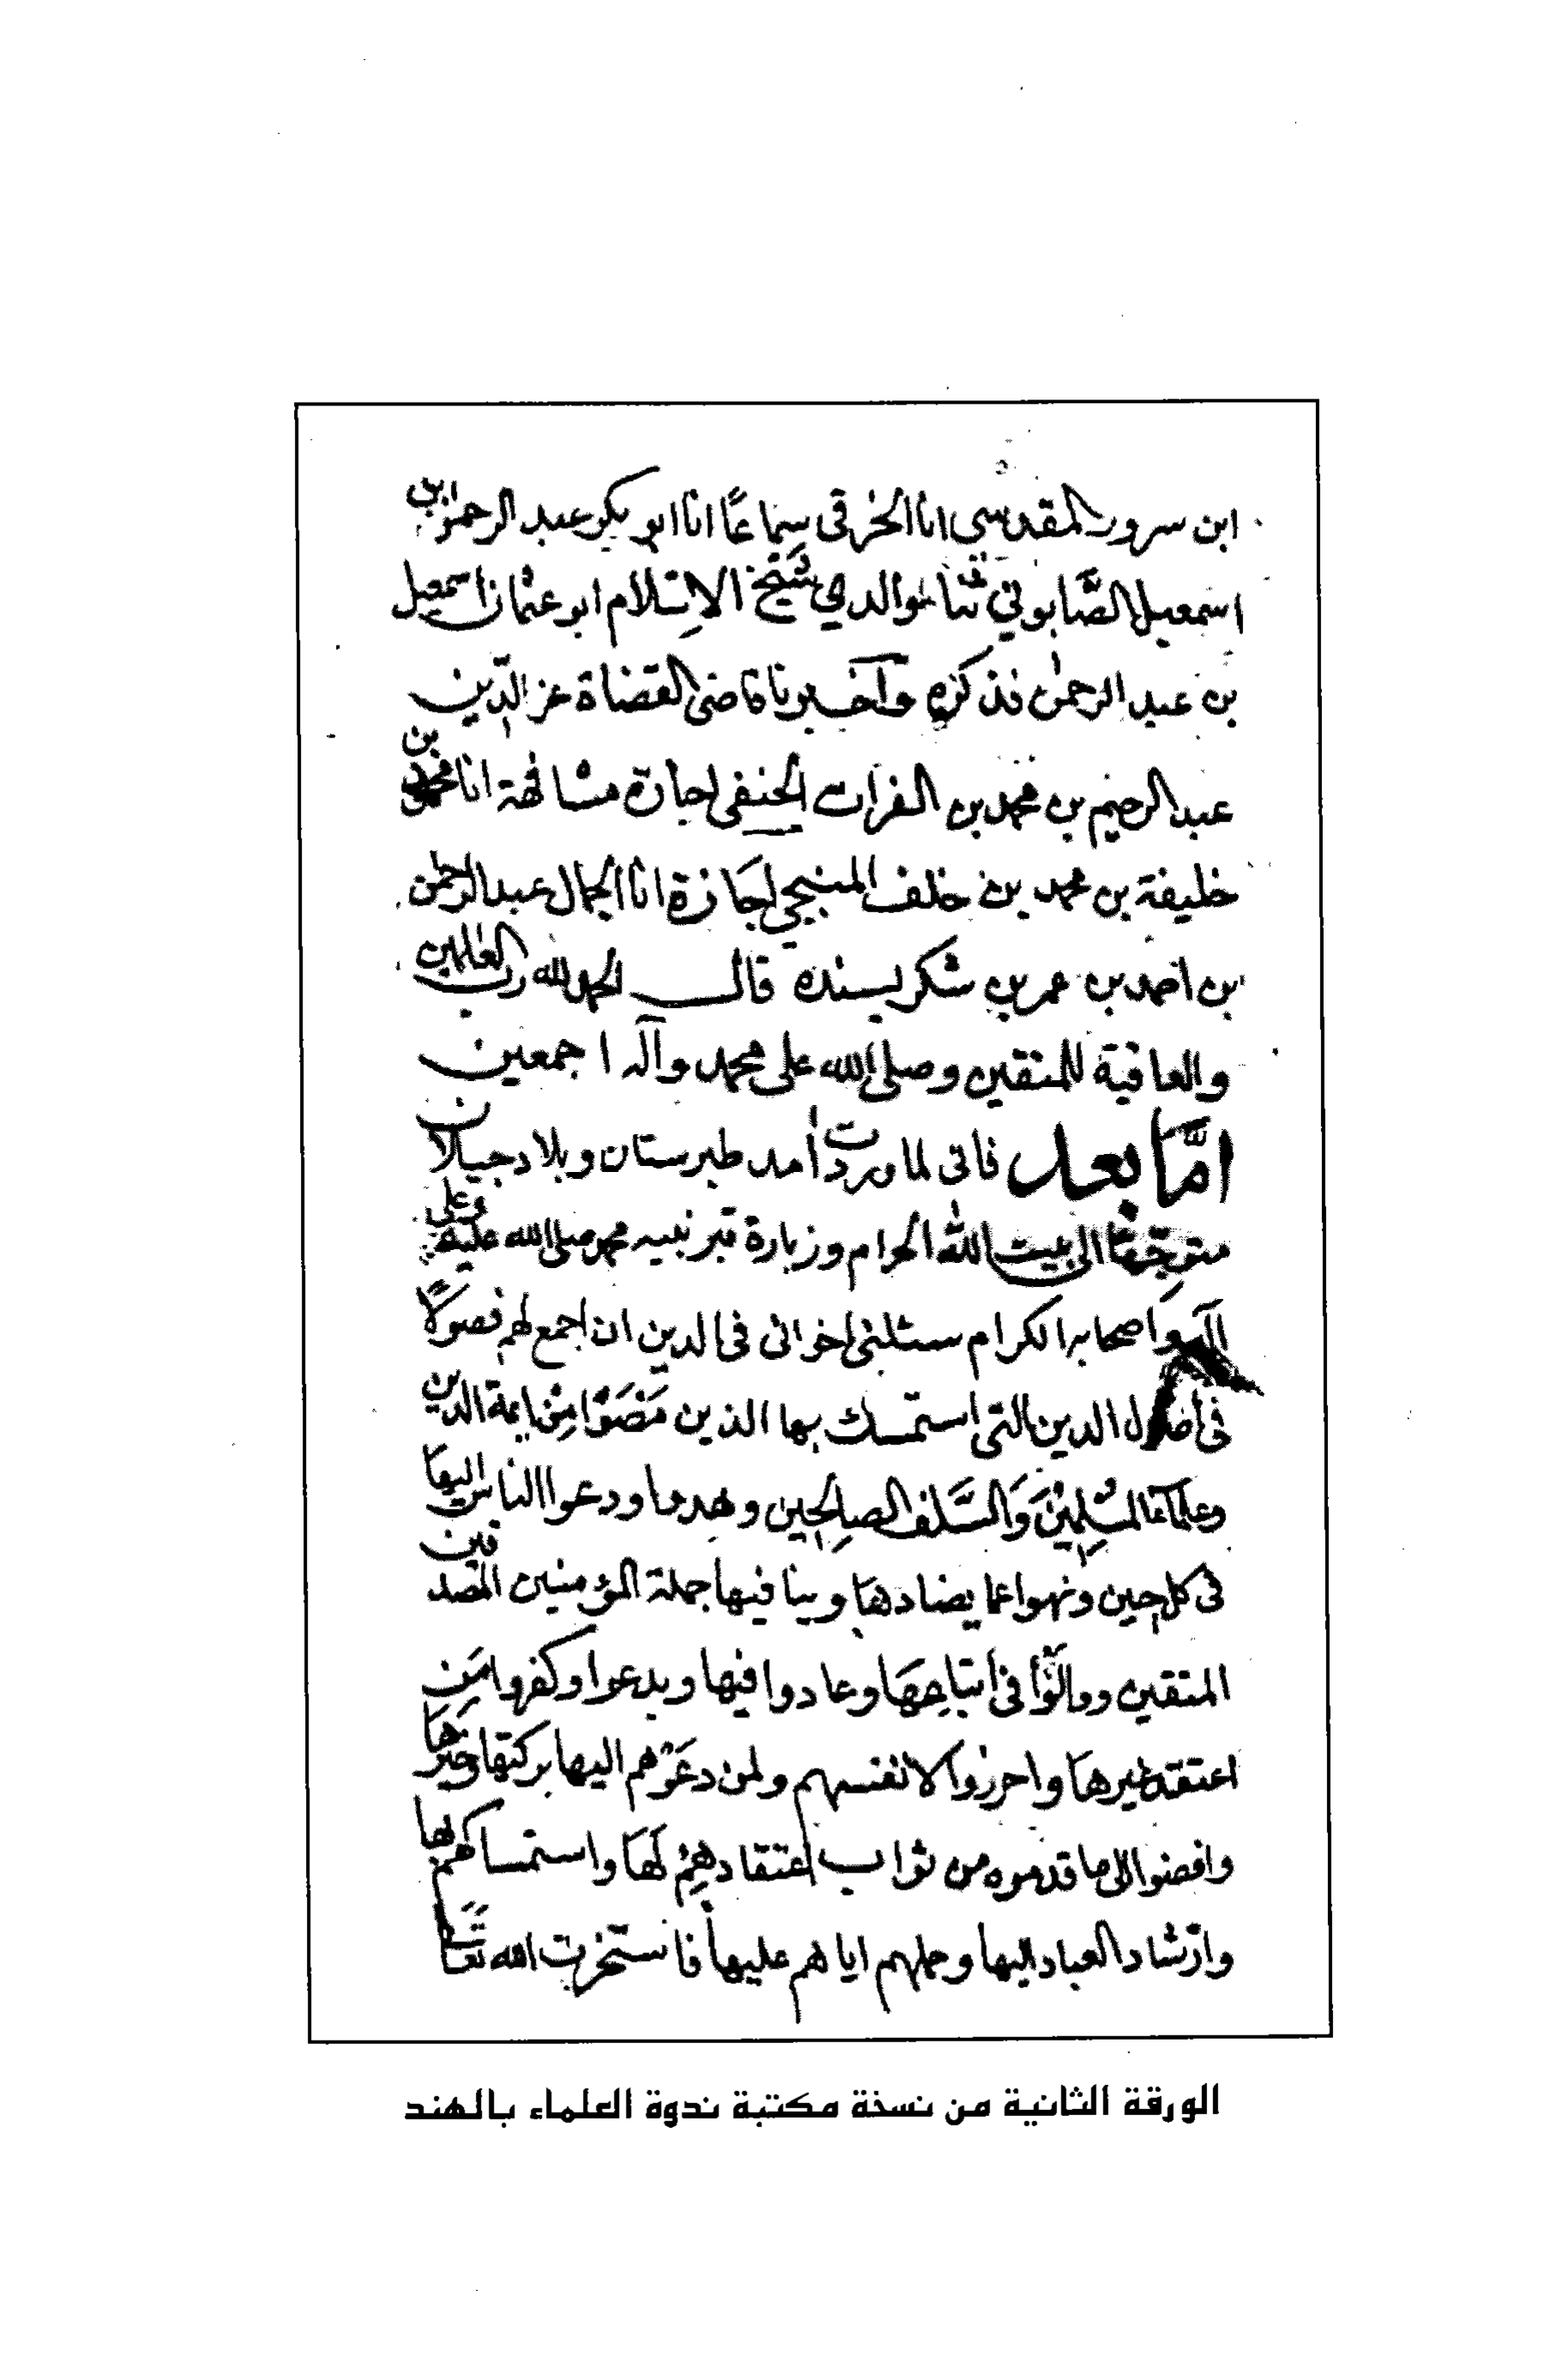 ابن سرور المقدسي انا الخرقى سماعًا انا ابو بكر عبد الرحمن ابن
اسمعيل الصَّابوني ثنا والدي شيخ الاسلام ابو عثمان اسمعيل
بن عبد الرحمٰن فذكره وآخبرنا قاضى القضاة عز الدّين
عبد الرحيم بن محمد بن الفرات الحنفى اجازة مشافهة انا محمود بن
خليفة بن محمد بن خلف المنبجي اجَازة انا الجمال عبد الرحمن
بن احمد بن عمر بن شكر بسنده قال الحمد لله رب العٰلمين
والعاقبة للمتقين وصلى الله على محمد وآله اجمعين
امَّا بعد فانى لما وردت اٰمد طبرستان وبلاد جيلان
متوجّها الى بيت الله الحرام وزيارة قبر نبيه محمد صلى الله عليه وعلى
آله واصحابه الكرام سئلنى اخوانى فى الدين ان اجمع لهم فصولًا
فى اصول الدين التى استمسك بها الذين مَضَوْا مِنْ ايمة الدين
وعلمآء المسْلِمِيْنَ وَالسَّلف الصالِحين وهدوا ودعوا الناس اليها
فى كل حين ونهوا عما يضادهَا وينافيها جملة المؤمنين المصدقين
المتقين ووالَوْا فى اتباعِهَا وعادوا فيها وبدعوا وكفروا مَن
اعتقد غيرهَا واحرزوا لانفسهم ولمن دعَوْهم اليها بركتها وخيرهَا
وافضوا الى ما قدموه من ثواب اعتقادهِمْ لَهَا واستمساكهم بها
وارشاد العباد اليها وحملهم اياهم عليها فاستخرت الله تعَالى
الورقة الثانية من نسخة مكتبة ندوة العلماء بالهند